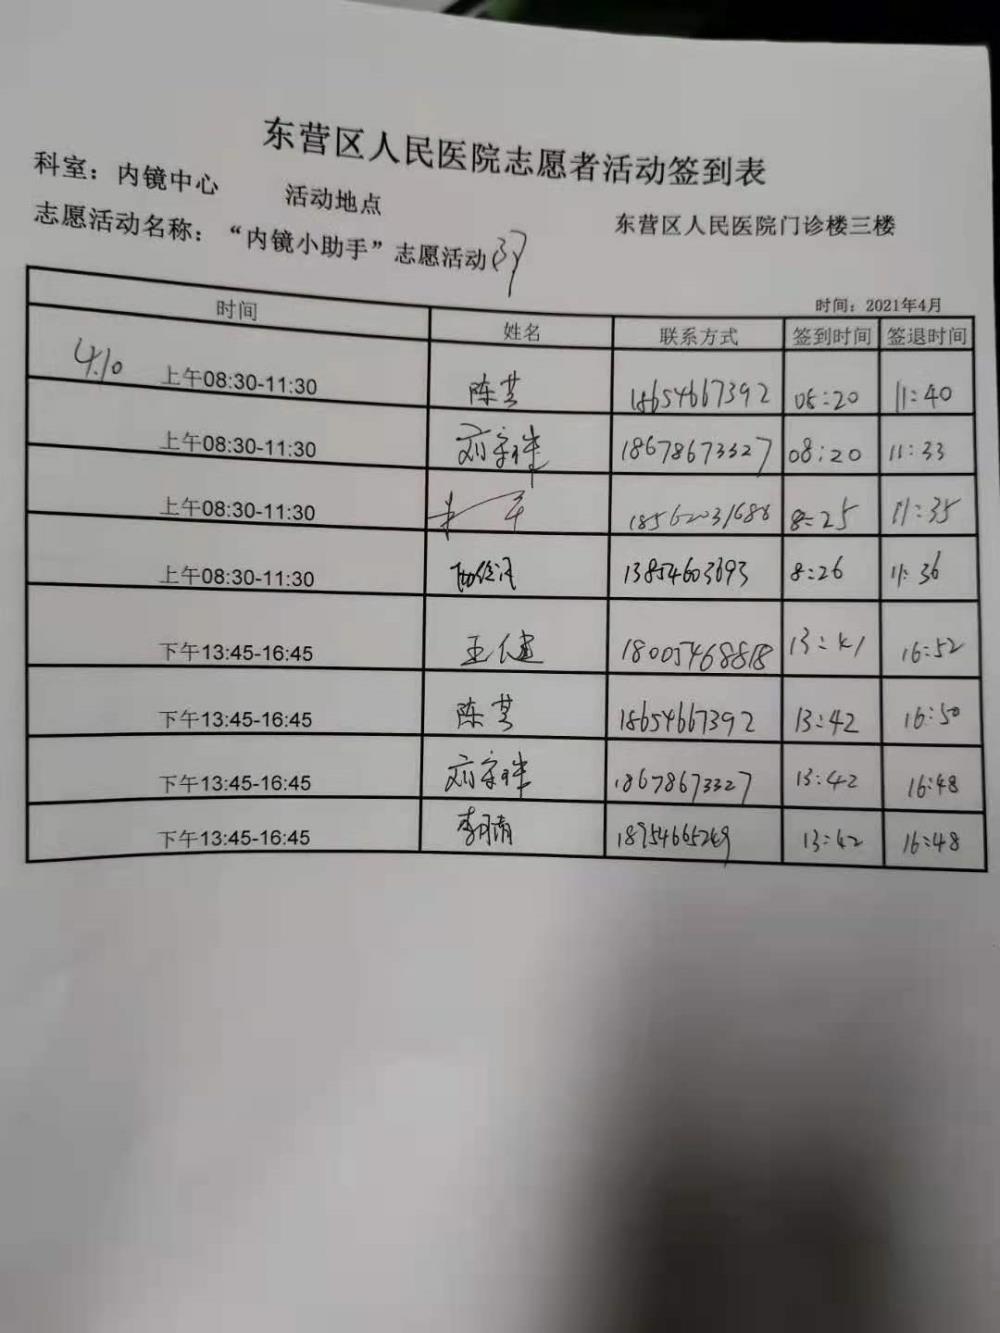 东营区人民医院志愿者活动签到表
科室：内镜中心 活动地点 东营区人民医院门诊楼三楼
志愿活动名称：“内镜小助手”志愿活动
时间：2021年4月
时间 姓名 联系方式 签到时间 签退时间
4.10 上午08:30-11:30 陈芸 18654667392 08:20 11:40
上午08:30-11:30 18678673327 08:20 11:33
上午08:30-11:30 18562031688 8:25 11:35
上午08:30-11:30 13854603693 8:26 11:36
下午13:45-16:45 王健 18005468818 13:41 16:52
下午13:45-16:45 陈芸 18654667392 13:42 16:50
下午13:45-16:45 18678673327 13:42 16:48
下午13:45-16:45 李月清 18954665269 13:42 16:48